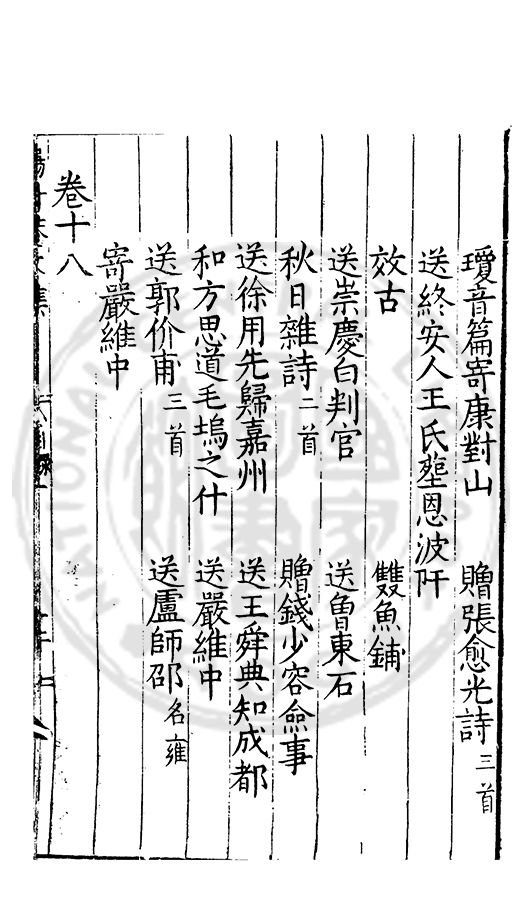 瓊音篇寄康對山　贈張愈光詩三首
送終安人王氏塟恩波阡
效古　雙魚鋪
送崇慶白判官　送魯東石
秋日雜詩二首　贈錢少容僉事
送徐用先歸嘉州　送王舜典知成都
和方思道毛塢之什　送嚴維中
送郭价甫三首　送盧師邵名雍
寄嚴維中
卷十八